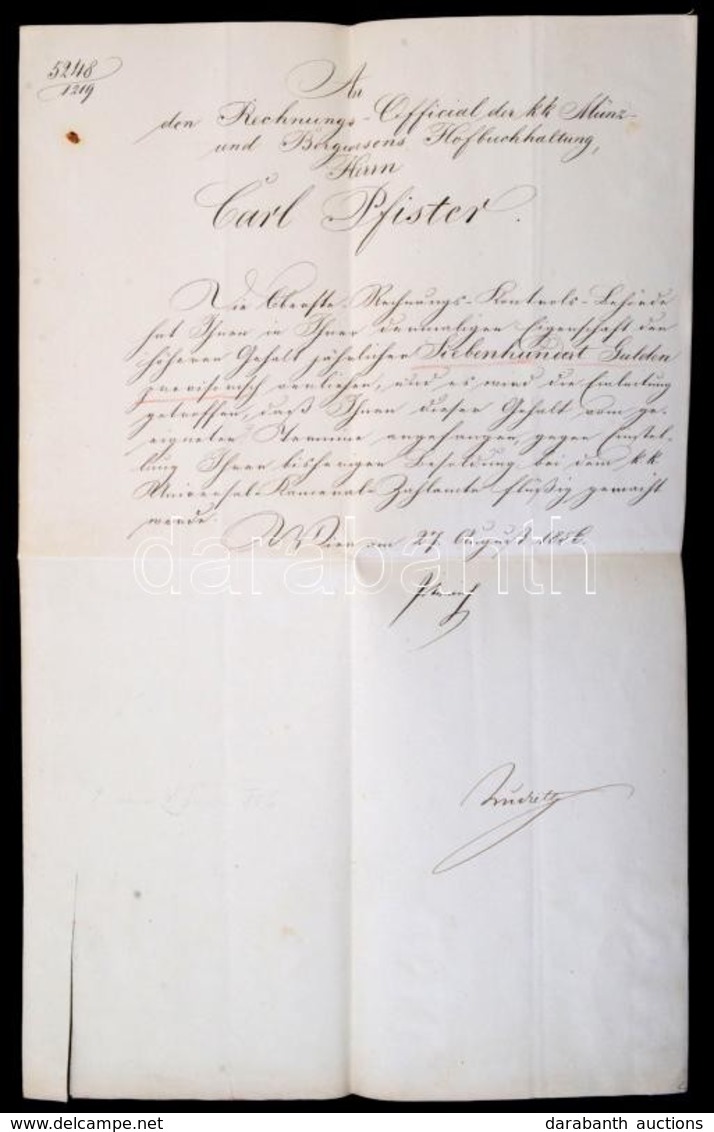 5248
1219
An
den Rechnungs-Official der kk Münz-
und Bergwesens Hofbuchhaltung,
Herrn
Carl Pfister.
Die Oberste Rechnungs-Kontrols-Behörde
hat Ihnen in Ihrer dermaligen Eigenschaft den
höheren Gehalt jährlicher Siebenhundert Gulden
provisorisch verliehen, und es wird die Einleitung
getroffen, daß Ihnen dieser Gehalt vom ge-
eigneten Termine angefangen, gegen Einstel-
lung Ihrer bisherigen Besoldung, bei dem k.k.
Universal-Kameral-Zahlamte flüßig gemacht
werde.
Wien am 27. August 1856.
darabanth
delcampe.net
darabanth auctions